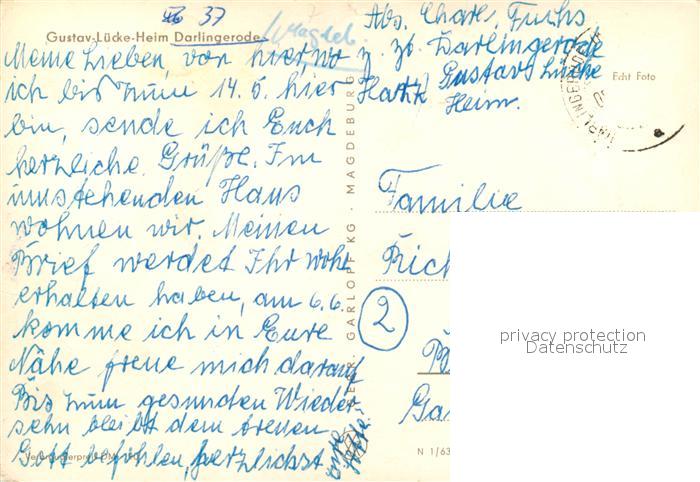 37
Gustav-Lücke-Heim Darlingerode
Magdeb
Abs. Charl. Fuchs
z. Zt. Darlingerode
Harz Gustav Lücke
Heim.
Echt Foto
Meine Lieben, von hier, wo
ich bis zum 14. 5. hier
bin, sende ich Euch
herzliche Grüße. Im
umstehenden Haus
wohnen wir. Meinen
Brief werdet Ihr wohl
erhalten haben, am 6.6.
komme ich in Eure
Nähe freue mich darauf
Bis zum gesunden Wieder-
sehn bleibt dem treuen
Gott befohlen, herzlichst
GARLOPP KG · MAGDEBURG
Familie
Rich
2
Ga
N 1/63
privacy protection
Datenschutz